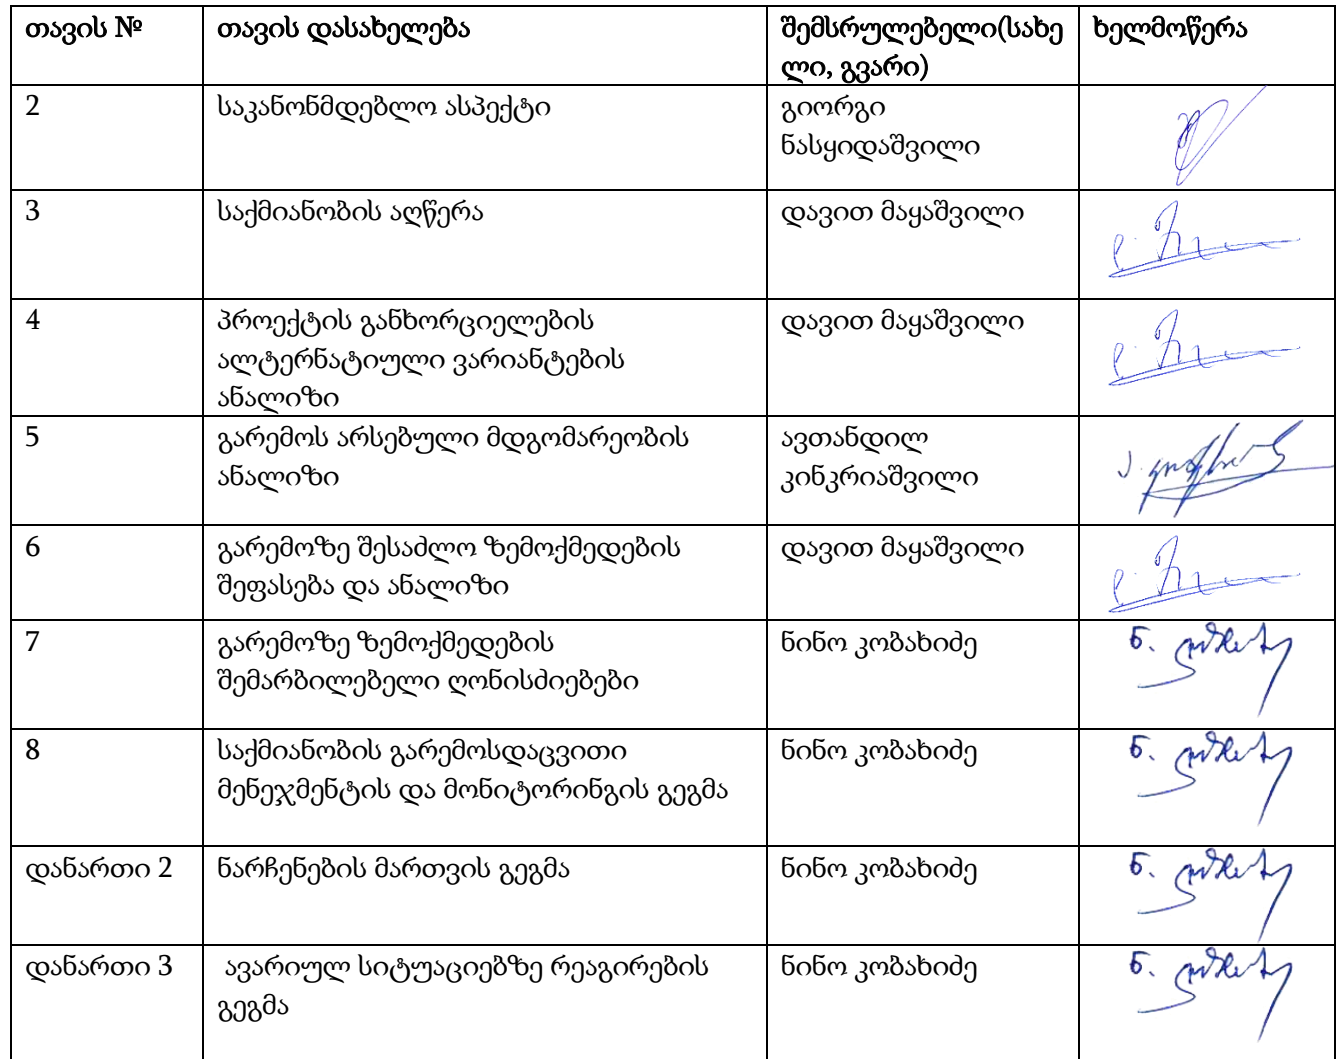 თავის №
თავის დასახელება
შემსრულებელი(სახე
ლი, გვარი)
ხელმოწერა
2
საკანონმდებლო ასპექტი
გიორგი
ნასყიდაშვილი
3
საქმიანობის აღწერა
დავით მაყაშვილი
4
პროექტის განხორციელების
ალტერნატიული ვარიანტების
ანალიზი
დავით მაყაშვილი
5
გარემოს არსებული მდგომარეობის
ანალიზი
ავთანდილ
კინკრიაშვილი
6
გარემოზე შესაძლო ზემოქმედების
შეფასება და ანალიზი
დავით მაყაშვილი
7
გარემოზე ზემოქმედების
შემარბილებელი ღონისძიებები
ნინო კობახიძე
8
საქმიანობის გარემოსდაცვითი
მენეჯმენტის და მონიტორინგის გეგმა
ნინო კობახიძე
დანართი 2
ნარჩენების მართვის გეგმა
ნინო კობახიძე
დანართი 3
ავარიულ სიტუაციებზე რეაგირების
გეგმა
ნინო კობახიძე